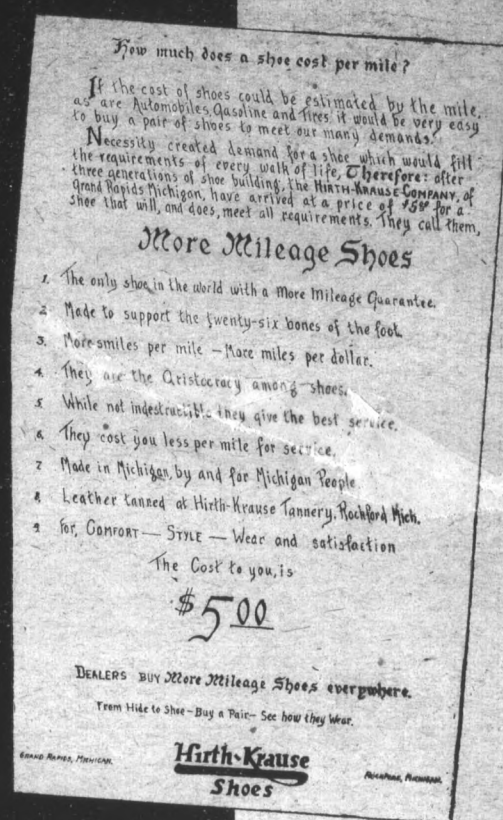 How much does a shoe cost per mile?
If the cost of shoes could be estimated by the mile,
as are Automobiles, Gasoline and Tires, it would be very easy
to buy a pair of shoes to meet our many demands.
Necessity created demand for a shoe which would fill
the requirements of every walk of life, Therefore: after
three generations of shoe building, the HIRTH-KRAUSE COMPANY, of
Grand Rapids Michigan, have arrived at a price of $5.00 for a
shoe that will, and does, meet all requirements. They call them,
More Mileage Shoes
1. The only shoe in the world with a More Mileage Guarantee.
2 Made to support the twenty-six bones of the foot.
3. More smiles per mile — More miles per dollar.
4. They are the Aristocracy among shoes.
5 While not indestructible they give the best service.
6. They cost you less per mile for service.
7 Made in Michigan, by and for Michigan People
8 Leather tanned at Hirth-Krause Tannery, Rockford Mich.
9 For, COMFORT — STYLE — Wear and satisfaction
The Cost to you, is
$5.00
DEALERS BUY More Mileage Shoes everywhere.
From Hide to Shoe — Buy a Pair — See how they Wear.
GRAND RAPIDS, MICHIGAN.
Hirth-Krause
Shoes
ROCKFORD, MICHIGAN.